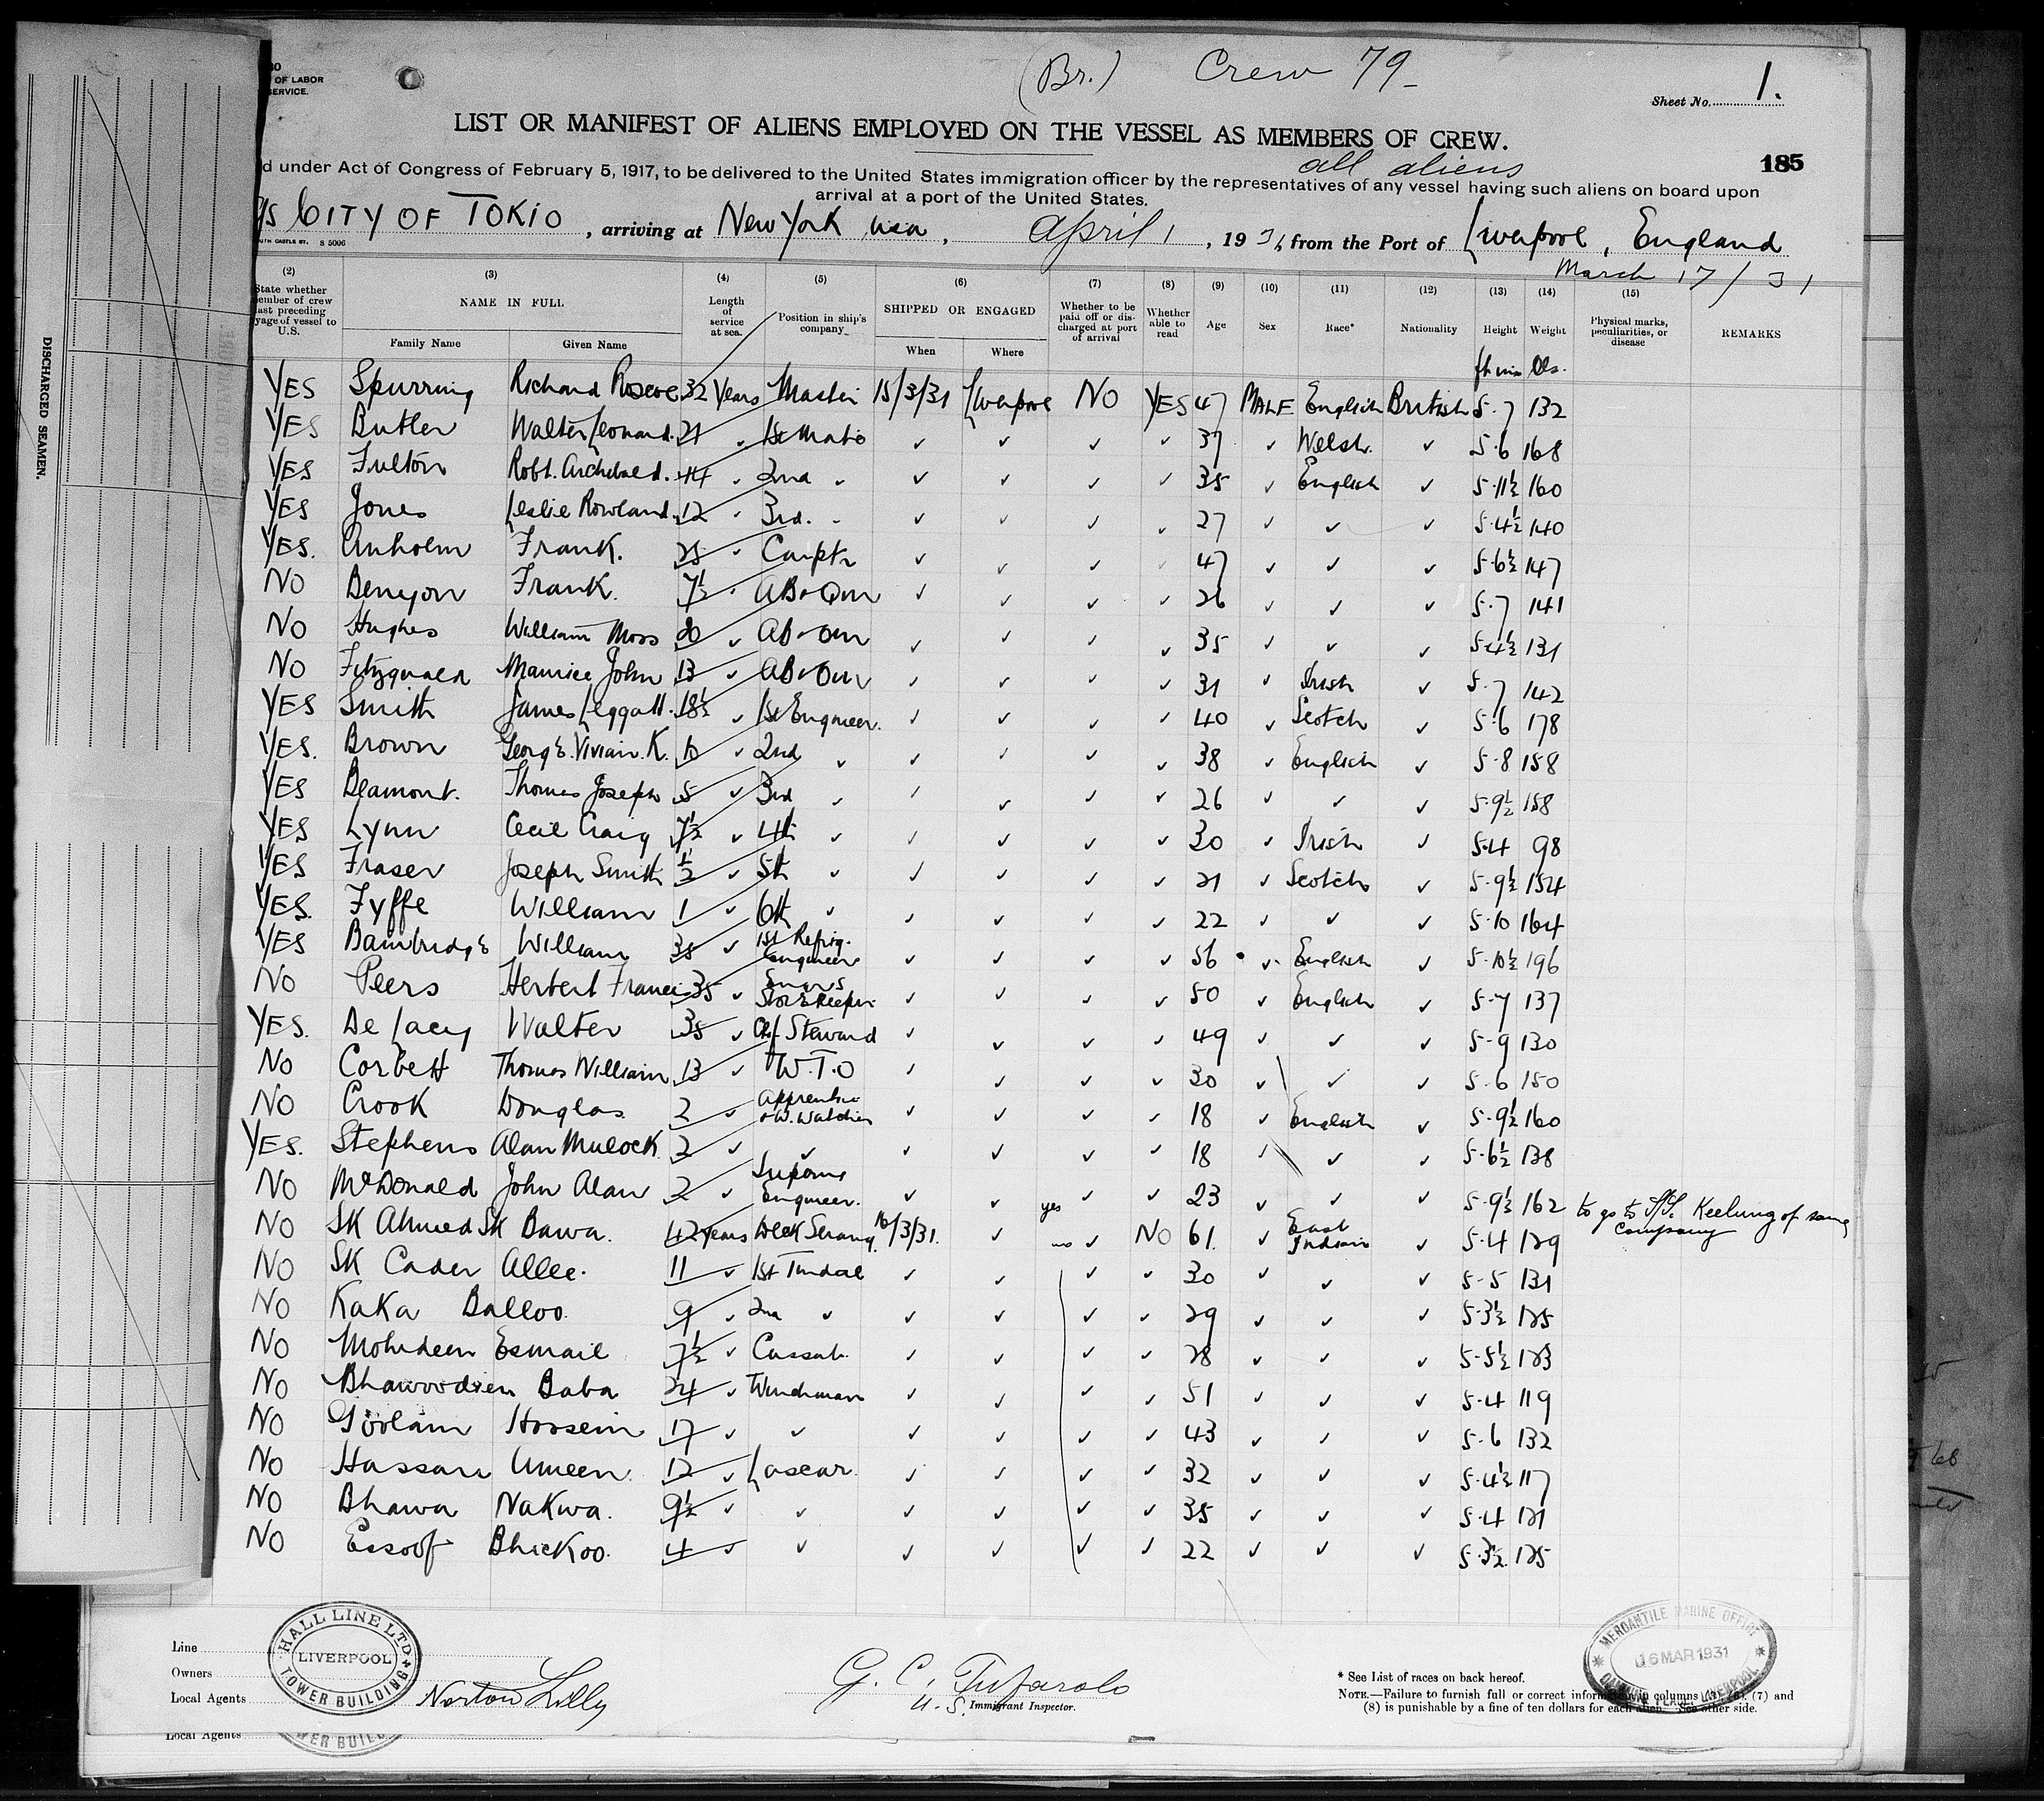 (Br.) Crew 79
Sheet No. 1.
OF LABOR
SERVICE.
LIST OR MANIFEST OF ALIENS EMPLOYED ON THE VESSEL AS MEMBERS OF CREW.
all aliens
185
d under Act of Congress of February 5, 1917, to be delivered to the United States immigration officer by the representatives of any vessel having such aliens on board upon
arrival at a port of the United States.
CITY OF TOKIO, arriving at New York usa, April 1, 1931, from the Port of Liverpool, England
S 5006
March 17/31
(2) (3) (4) (5) (6) (7) (8) (9) (10) (11) (12) (13) (14) (15)
State whether member of crew last preceding voyage of vessel to U.S. NAME IN FULL Length of service at sea. Position in ship's company SHIPPED OR ENGAGED Whether to be paid off or discharged at port of arrival Whether able to read Age Sex Race* Nationality Height Weight Physical marks, peculiarities, or disease REMARKS
Family Name Given Name When Where
ft ins lbs.
YES Spurring Richard Roscoe 32 years Master 15/3/31 Liverpool NO YES 47 MALE English British 5-7 132
YES Butler Walter Leonard. 21 ✓ 1st Mate ✓ ✓ ✓ ✓ 37 ✓ Welsh. ✓ 5-6 168
YES Fulton Robt. Archibald. 14 ✓ 2nd ✓ ✓ ✓ ✓ ✓ 35 ✓ English ✓ 5-11½ 160
YES Jones Leslie Rowland. 12 ✓ 3rd. ✓ ✓ ✓ ✓ ✓ 27 ✓ ✓ ✓ 5-4½ 140
YES. Anholm Frank. 25 ✓ Carptr ✓ ✓ ✓ ✓ 47 ✓ ✓ ✓ 5-6½ 147
NO Benyon Frank. 7½ ✓ AB & Qm ✓ ✓ ✓ ✓ 26 ✓ ✓ ✓ 5-7 141
NO Hughes William Moss 20 ✓ AB & Qm ✓ ✓ ✓ ✓ 35 ✓ ✓ ✓ 5-4½ 131
NO Fitzgerald Maurice John 13 ✓ AB & Qm ✓ ✓ ✓ ✓ 31 ✓ Irish ✓ 5-7 142
YES Smith James Leggatt. 18½ ✓ 1st Engineer. ✓ ✓ ✓ ✓ 40 ✓ Scotch ✓ 5-6 178
YES. Brown George. Vivian. K. 10 ✓ 2nd ✓ ✓ ✓ ✓ ✓ 38 ✓ English ✓ 5-8 158
YES Beamont. Thomas Joseph 5 ✓ 3rd ✓ ✓ ✓ ✓ ✓ 26 ✓ ✓ ✓ 5-9½ 158
YES Lynn Cecil Craig 7½ ✓ 4th ✓ ✓ ✓ ✓ ✓ 30 ✓ Irish ✓ 5-4 98
YES Fraser Joseph Smith ½ ✓ 5th ✓ ✓ ✓ ✓ ✓ 21 ✓ Scotch ✓ 5-9½ 154
YES. Fyffe William 1 ✓ 6th ✓ ✓ ✓ ✓ ✓ 22 ✓ ✓ ✓ 5-10 164
YES Bambridge William 35 ✓ 1st Refrig. Engineer ✓ ✓ ✓ ✓ 56 ✓ English ✓ 5-10½ 196
NO Peers Herbert Francis 35 ✓ Storekeeper. ✓ ✓ ✓ ✓ 50 ✓ English ✓ 5-7 137
YES. De Lacey Walter 35 ✓ Chf Steward ✓ ✓ ✓ ✓ 49 ✓ ✓ ✓ 5-9 130
NO Corbett Thomas William 13 ✓ W.T.O ✓ ✓ ✓ ✓ 30 ✓ ✓ ✓ 5-6 150
NO Crook Douglas 2 ✓ Apprentice & W. Watcher ✓ ✓ ✓ ✓ 18 ✓ English ✓ 5-9½ 160
YES. Stephens Alan Mulock 2 ✓ ✓ ✓ ✓ ✓ ✓ 18 ✓ ✓ ✓ 5-6½ 138
NO McDonald John Alan 2 ✓ Engineer. ✓ ✓ yes ✓ ✓ 23 ✓ ✓ ✓ 5-9½ 162 to go to S/S. Keelung of same company
NO SK Ahmed SK Bawa. 42 years Deck Serang 16/3/31. ✓ no ✓ NO 61. ✓ East Indian ✓ 5-4 129
NO SK Cader Allee. 11 ✓ 1st Tindal ✓ ✓ ✓ ✓ 30 ✓ ✓ ✓ 5-5 131
NO Kaka Balloo. 9 ✓ 2nd ✓ ✓ ✓ ✓ ✓ 29 ✓ ✓ ✓ 5-3½ 125
NO Mohideen Esmail 7½ ✓ Cassab. ✓ ✓ ✓ ✓ 28 ✓ ✓ ✓ 5-5½ 123
NO Bhawoodien Baba 24 ✓ Winchman ✓ ✓ ✓ ✓ 51 ✓ ✓ ✓ 5-4 119
NO Goolam Hossein 17 ✓ ✓ ✓ ✓ ✓ ✓ 43 ✓ ✓ ✓ 5-6 132
NO Hassan Umeen 12 ✓ Lascar. ✓ ✓ ✓ ✓ 32 ✓ ✓ ✓ 5-4½ 117
NO Bhawa Nakwa. 9½ ✓ ✓ ✓ ✓ ✓ ✓ 35 ✓ ✓ ✓ 5-4 121
NO Essoof Bhickoo. 4 ✓ ✓ ✓ ✓ ✓ ✓ 22 ✓ ✓ ✓ 5-3½ 125
DISCHARGED SEAMEN.
Line
Owners
Local Agents Norton Lilly
HALL LINE LTD
LIVERPOOL
TOWER BUILDING
G. C. Tufarolo
U. S. Immigrant Inspector.
* See List of races on back hereof.
NOTE.—Failure to furnish full or correct information in columns (3), (6), (7) and
(8) is punishable by a fine of ten dollars for each alien. See other side.
MERCANTILE MARINE OFFICE
16 MAR 1931
LIVERPOOL
Local Agents